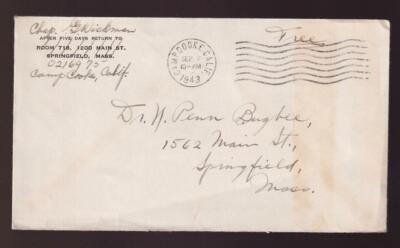 Chap. G Wickman
AFTER FIVE DAYS RETURN TO
ROOM 718, 1200 MAIN ST.
SPRINGFIELD, MASS.
Camp Cooke, Calif.
CAMP COOKE, CALIF.
SEP
1943
Free
Dr. N. Penn Bugbee,
1562 Main St.,
Springfield,
Mass.